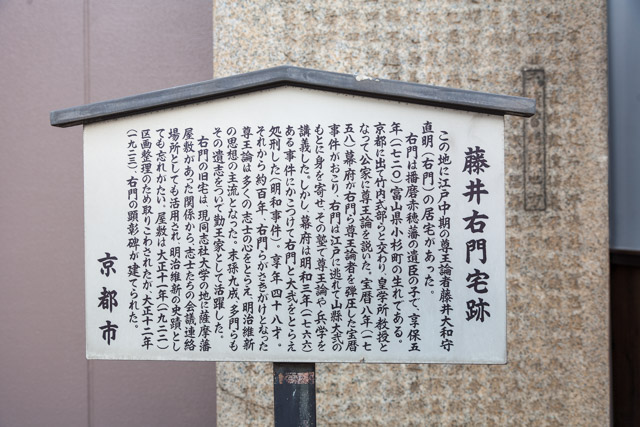 藤井右門宅跡
この地に江戸中期の尊王論者藤井大和守
直明（右門）の居宅があった。
右門は播磨赤穂藩の遺臣の子で、享保五
年（一七二〇）富山県小杉町の生れである。
京都に出て竹内式部らと交わり、皇学所教授と
なって公家に尊王論を説いた。宝暦八年（一七
五八）幕府が右門ら尊王論者を弾圧した宝暦
事件がおこり、右門は江戸に逃れて山縣大弐の
もとに身を寄せ、その塾で尊王論や兵学を
講義した。しかし、幕府は明和三年（一七六六）
ある事件にかこつけて右門と大弐をとらえ
処刑した（明和事件）。享年四十八才。
それから約百年、右門らがさきがけとなった
尊王論は多くの志士の心をとらえ、明治維新
の思想の主流となった。末孫九成、多門らも
その遺志をついで勤王家として活躍した。
右門の旧宅は、現同志社大学の地に薩摩藩
屋敷があった関係から、志士たちの会議連絡
場所としても活用され、明治維新の史蹟とし
ても忘れがたい。屋敷は大正十一年（一九二二）
区画整理のため取りこわされたが、大正十二年
（一九二三）、右門の顕彰碑が建てられた。
京都市